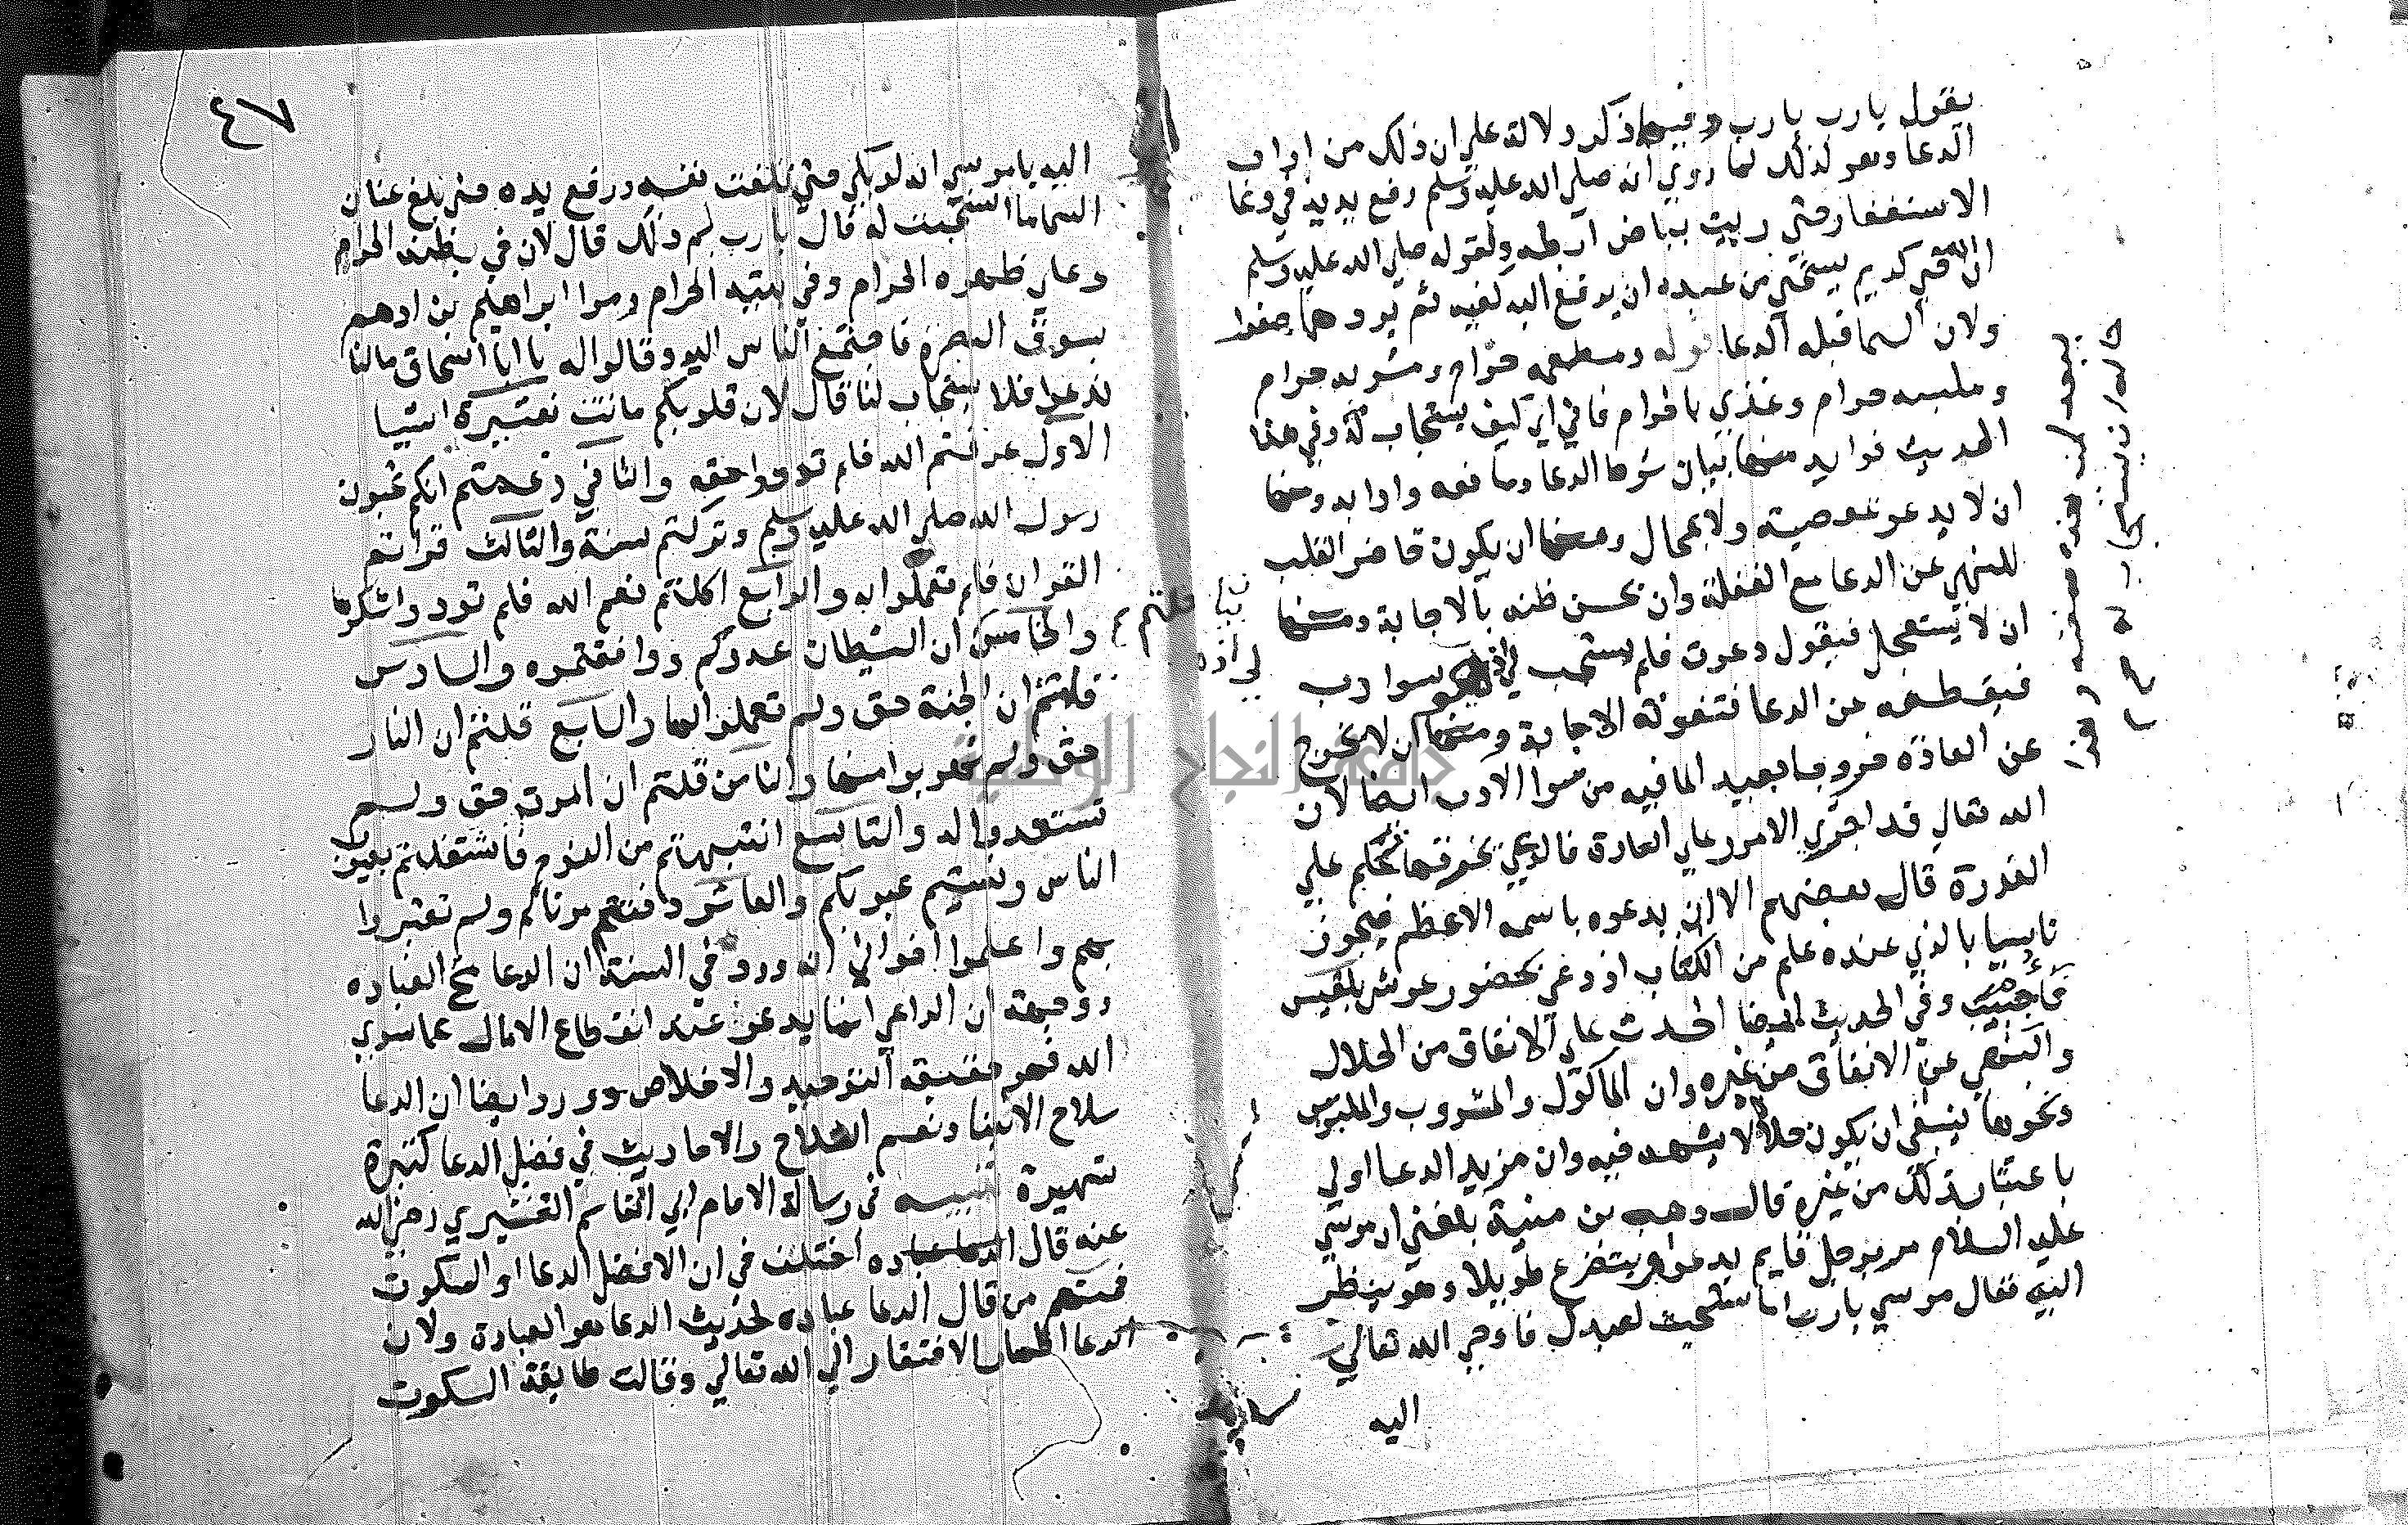 يقول يا رب يا رب وفيما ذكر دلالة علي ان ذلك من اداب
الدعا وهو كذلك لما روي انه صلي الله عليه وسلم رفع يديه في دعا
الاستغفار حتي رييت بياض ابطه ولقوله صلي الله عليه وسلم
ان الله حي كريم يستحي من عبده ان يرفع اليه كفيه ثم يردهما صفرا
ولان السما قبلة الدعا قوله ومطعمه حرام ومشربه حرام
وملبسه حرام وغذي بالحرام فاني اي كيف يستجاب له وفي هذا
الحديث فوايد منها بيان شرط الدعا ومانعه وادابه ومنها
ان لا يدعو بمعصية ولا بمحال ومنها ان يكون حاضر القلب
للنهي عن الدعا مع الغفلة وان يحسن ظنه بالاجابة ومنها
ان لا يستعجل فيقول دعوت فلم يستجب لي سوا دب
فيقطعه عن الدعا فتفوته الاجابة ومنها ان لا يخرج
عن العادة خروجا بعيدا لما فيه من سوا الادب ايضا لان
الله تعالي قد اجري الامور علي العادة فالدعا بخرقها تحكم علي
القدرة قال بعضهم الا ان يدعوه باسمه الاعظم فيجوز
تاسيا بالذي عنده علم من الكتاب اذ دعي بحضور عرش بلقيس
فاجيب وفي الحديث ايضا الحث علي الانفاق من الحلال
والنهي عن الانفاق من غيره وان الماكول والمشروب والملبوس
ونحوها ينبغي ان يكون حلالا لا شبهة فيه وان مزيد الدعا اولي
باعتبار ذلك من غيره قال وهب بن منبه بلغني ان موسي
عليه السلام مر برجل قايم يدعو ويتضرع طويلا وهو ينظر
اليه فقال موسي يا رب اما تستجيب لعبدك فاوحي الله تعالي
اليه
جامعة النجاح الوطنية
٤٧
اليه يا موسي انه لو بكي حتي تلفت نفسه ورفع يده حتي بلغ عنان
السما ما استجبت له قال يا رب لم ذلك قال لان في بطنه الحرام
وعلي ظهره الحرام وفي بيته الحرام ومر ابراهيم بن ادهم
بسوق البصرة فاجتمع الناس اليه وقالوا له يا ابا اسحاق مالنا
ندعوا فلا يستجاب لنا قال لان قلوبكم ماتت بعشرة اشيا
الاول عرفتم الله فلم تودوا حقه والثاني زعمتم انكم تحبون
رسول الله صلي الله عليه وسلم وتركتم سنته والثالث قراتم
القران فلم تعملوا به والرابع اكلتم نعم الله فلم تودوا شكرها
والخامس قلتم ان الشيطان عدوكم ووافقتموه والسادس
قلتم ان الجنة حق ولم تعملوا لها والسابع قلتم ان النار
حق ولم تهربوا منها والثامن قلتم ان الموت حق ولم
تستعدوا له والتاسع انتبهتم من النوم فاشتغلتم بعيوب
الناس ونسيتم عيوبكم والعاشر دفنتم موتاكم ولم تعتبروا
بهم واعلموا اخواني انه ورد في السنة ان الدعا مخ العبادة
ووجهه ان الداعي انما يدعو عند انقطاع الامال عما سوي
الله فهو حقيقة التوحيد والاخلاص وورد ايضا ان الدعا
سلاح الانبيا ونعم السلاح والاحاديث في فضل الدعا كثيرة
شهيرة تنبيه في رسالة الامام ابي القاسم القشيري رضي الله
عنه قال اختلف في ان الافضل الدعا او السكوت
فمنهم من قال الدعا عبادة لحديث الدعا هو العبادة ولان
الدعا اظهار الافتقار الي الله تعالي وقالت طايفة السكوت